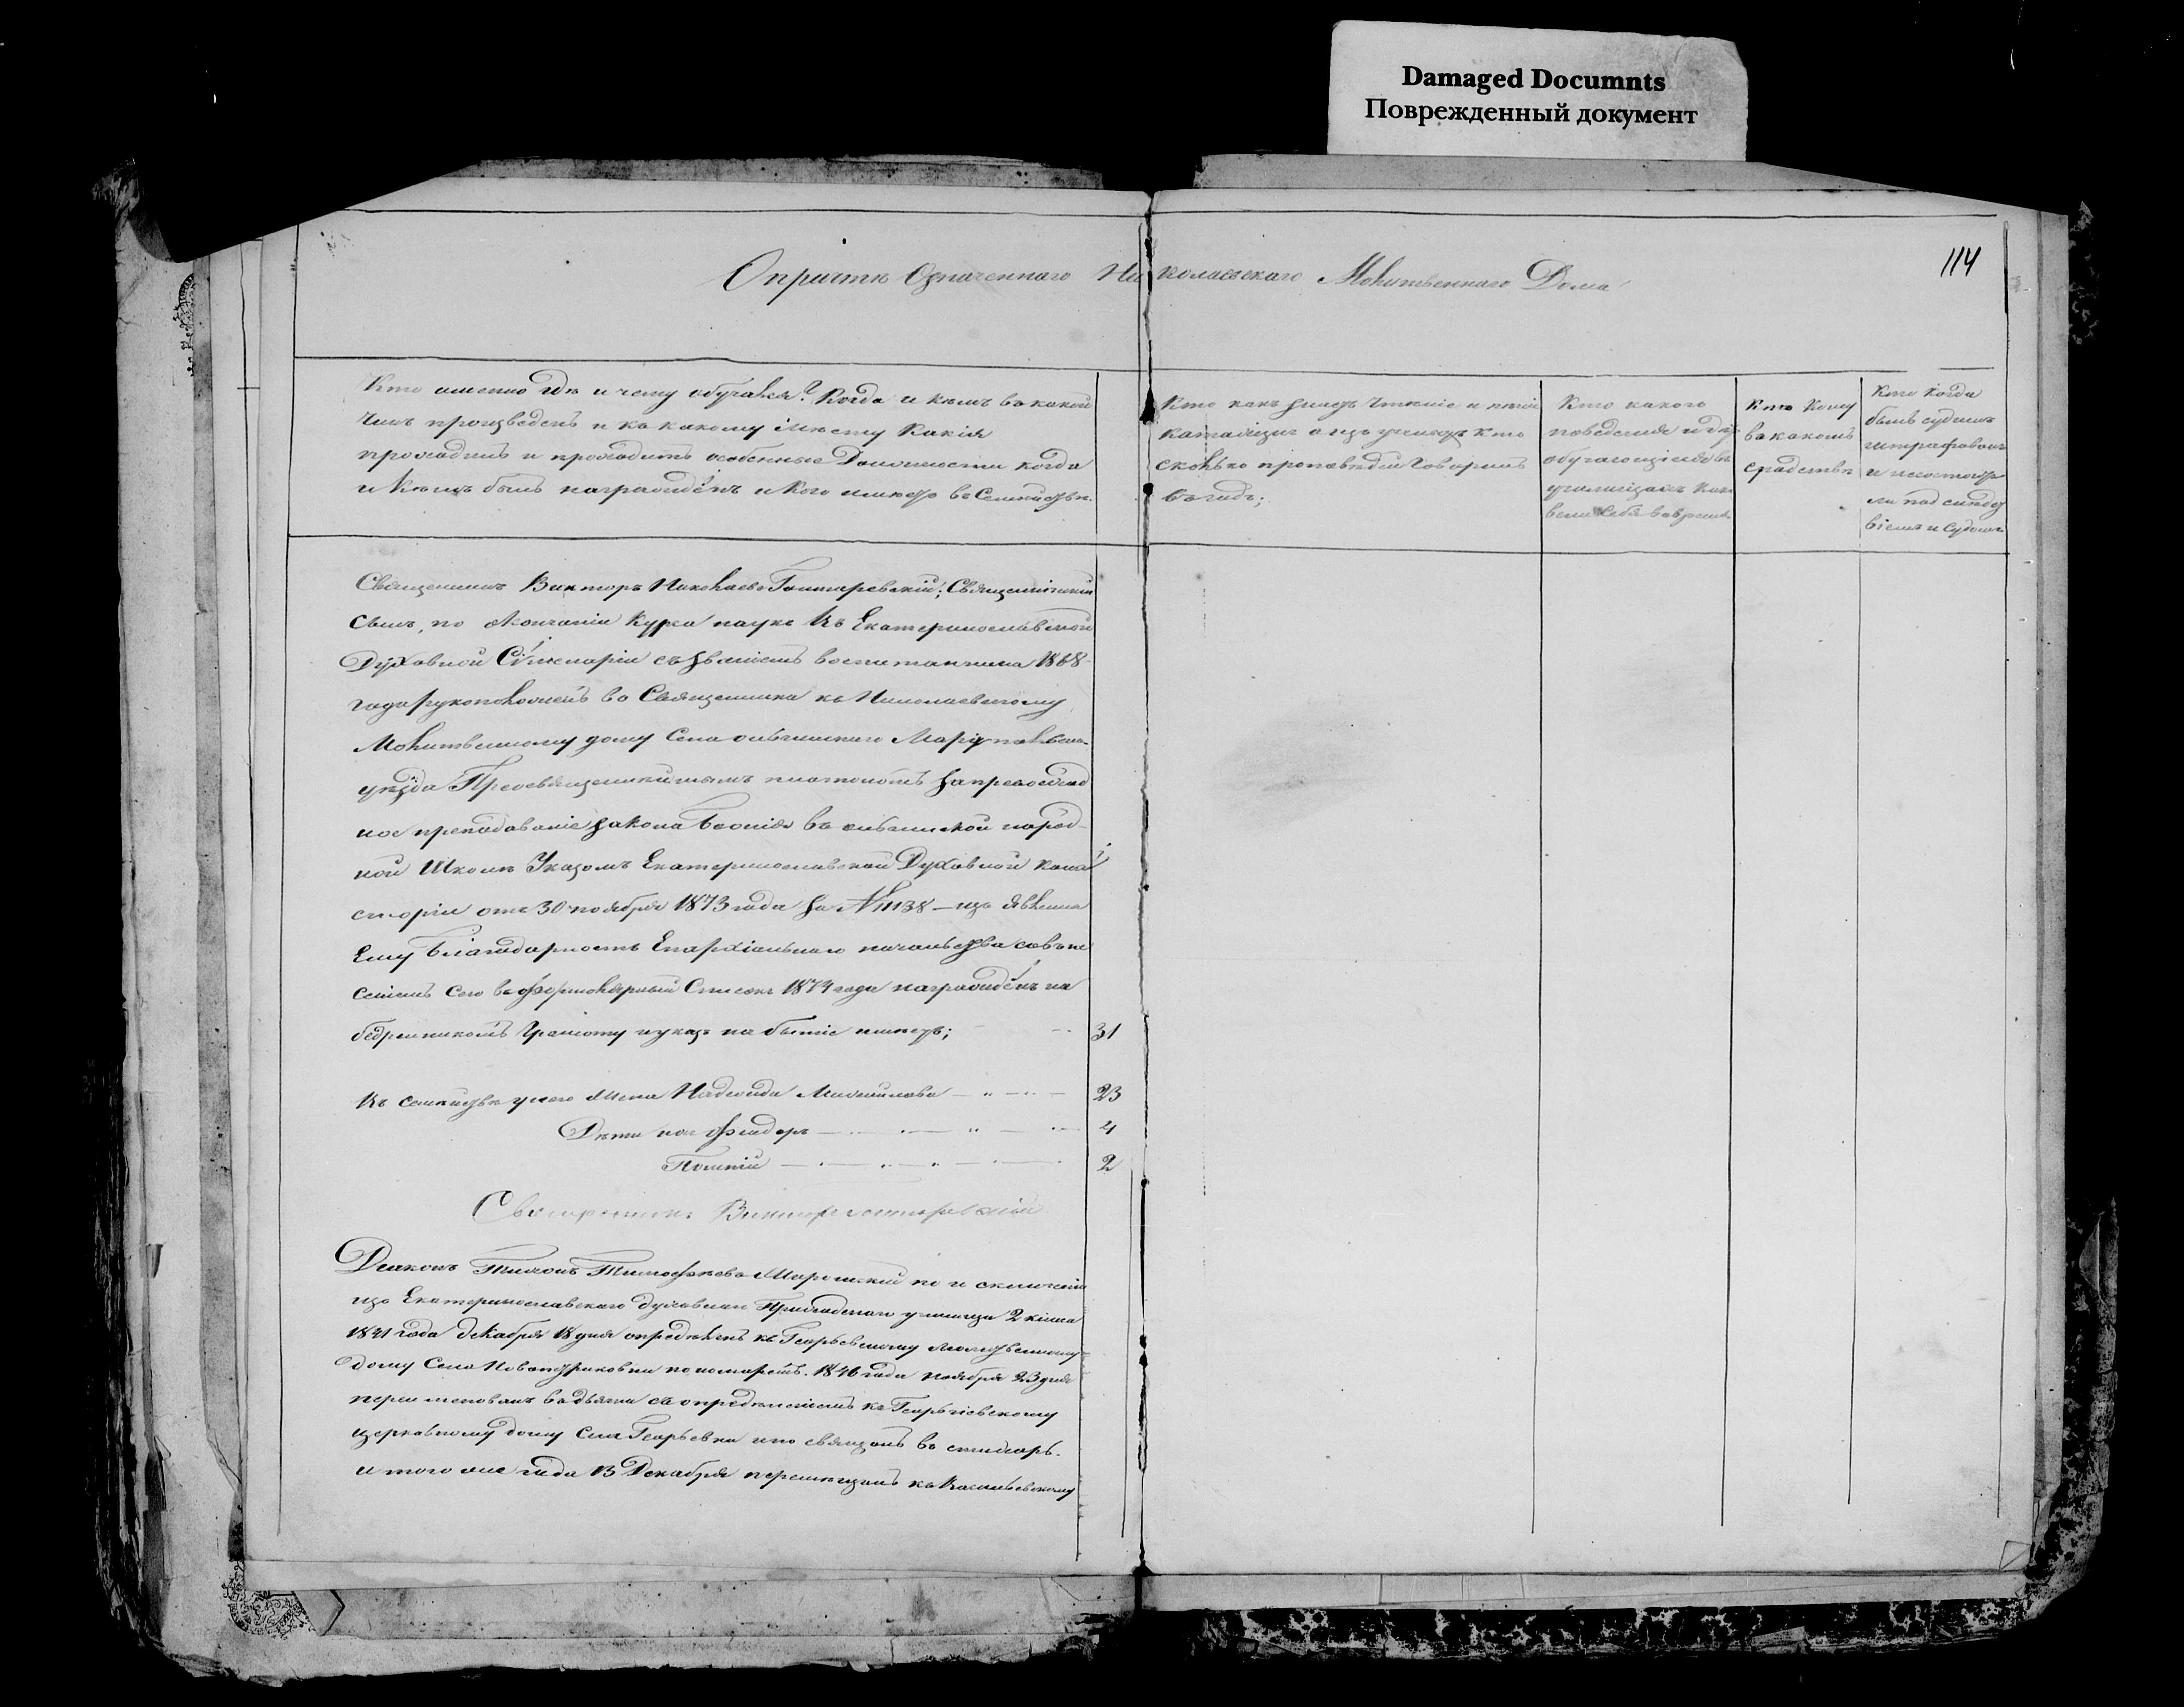 Damaged Documnts
Поврежденный документ
114
О причтѣ Означеннаго Николаевскаго Молитвеннаго Дома
Кто именно гдѣ и чему обучался? Когда и кѣмъ въ какой
Чинъ произведенъ и къ какому мѣсту Какія
проходилъ и проходитъ особенныя Должности когда
и кѣмъ былъ награждёнъ и Кого имѣетъ въ Семействѣ.
Кто какъ знаетъ Чтеніе и
катихизисъ Кто
сколько проповѣдей Говорилъ
въ годъ;
Кто какого
поведенія и
обучающіеся въ
училищахъ
вели себя
Кто Кому
въ какомъ
сродствѣ
Кто Когда
былъ судимъ
штрафованъ
и не состоитъ
ли подъ слѣдст
віемъ и Судомъ
Священникъ Викторъ Николаевъ Гонтаревскій; Священническій
Сынъ, по окончаніи Курса наукъ въ Екатеринославской
Духовной Семенаріи съ званіемъ воспитанника 1868
года рукоположенъ во Священника къ Николаевскому
Молитвенному дому Села Ольгинскаго Маріупольска.
уѣзда Преосвященнѣйшимъ Платономъ за
ное преподаваніе закона Божія въ Ольгинской народ-
ной Школѣ Указомъ Екатеринославской Духовной Конси
сторіи отъ 30 ноября 1873 года за № 11138 — изъявлена
Ему благодарность Епархіальнаго начальства со внѣ
сеніемъ сего въ формолярный Списокъ 1874 года награждёнъ на
бедренникомъ Грамоту и указъ на бытіе имѣетъ; 31
Въ семействѣ у него Жена Надежда Михайлова 23
Дѣти ихъ Феодоръ 4
2
Священникъ Викторъ Гонтаревскій
Діаконъ Тихонъ Тимофѣевъ по исключеніи
изъ Екатеринославскаго духовнаго Приходскаго училища 2 класса
1841 года Декабря 18 дня опредѣленъ къ Георгіевскому молитвенному
дому Села пономарёмъ. 1846 года ноября 23 дня
переименованъ въ дьячки съ опредѣленіемъ къ Георгіевскому
церковному дому Села Георгіевки и посвященъ въ стихарь.
и того же года 13 Декабря перемѣщенъ къ Васильевскому